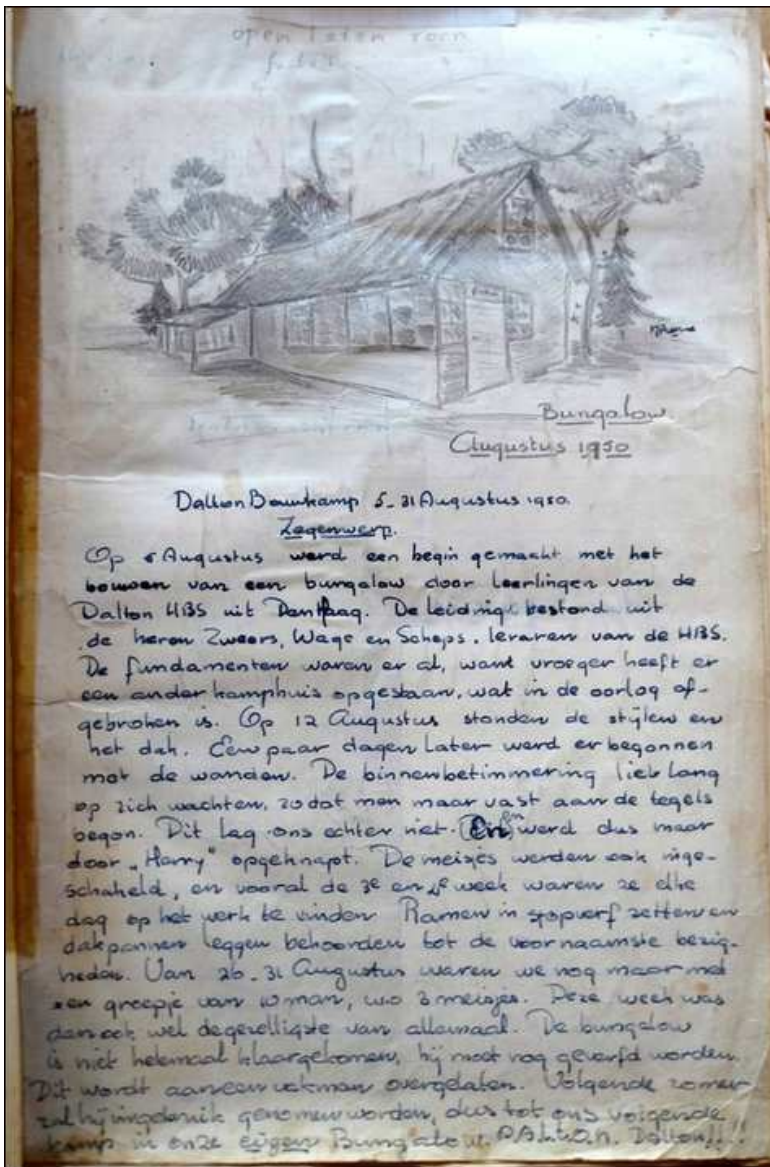 open laten voor
Bungalow
Augustus 1950
Dalton Bouwkamp 5-31 Augustus 1950.
Zegenwerp.
Op 5 Augustus werd een begin gemaakt met het
bouwen van een bungalow door leerlingen van de
Dalton HBS uit Den Haag. De leiding bestond uit
de heren Zweers, Wage en Scheps, leraren van de HBS.
De fundamenten waren er al, want vroeger heeft er
een ander kamphuis opgestaan, wat in de oorlog af-
gebroken is. Op 12 Augustus stonden de stijlen en
het dak. Een paar dagen later werd er begonnen
met de wanden. De binnenbetimmering liet lang
op zich wachten, zodat men maar vast aan de tegels
begon. Dit lag ons echter niet. En werd dus maar
door „Harry" opgeknapt. De meisjes werden ook inge-
schakeld, en vooral de 3e en 4e week waren ze elke
dag op het werk te vinden. Ramen in stopverf zetten en
dakpannen leggen behoorden tot de voornaamste bezig-
heden. Van 26-31 Augustus waren we nog maar met
een groepje van 10 man, w.o 3 meisjes. Deze week was
dan ook wel de gezelligste van allemaal. De bungalow
is niet helemaal klaargekomen, hij moet nog geverfd worden.
Dit wordt aan een vakman overgelaten. Volgende zomer
zal hij in gebruik genomen worden, dus tot ons volgende
kamp in onze eigen Bungalow. D.A.L.T.O.N. Dalton!!!